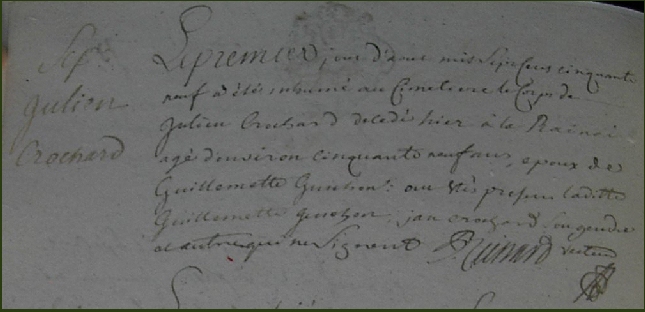 Sep.
Julien
Crochard
Le premier jour d'aout mil sept cens cinquante
neuf a été inhumé au Cimetiere le Corps de
Julien Crochard decedé hier à la
agé d'environ cinquante neuf ans, epoux de
Guillemette Guichen: ont étés presens laditte
Guillemette guichen, jan crochard son gendre
et autres qui ne signent